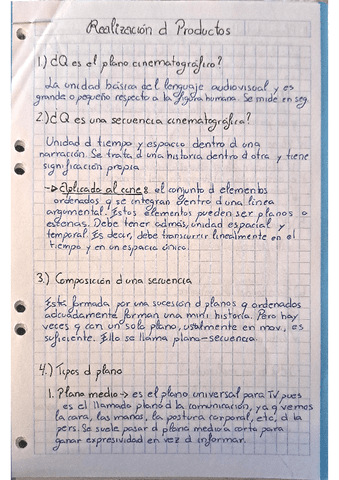 Realización d Productos
1.) ¿Q es el plano cinematográfico?
La unidad básica del lenguaje audiovisual y es
grande o pequeño respecto a la figura humana. Se mide en seg.
2.) ¿Q es una secuencia cinematográfica?
Unidad d tiempo y espacio dentro d una
narración. Se trata d una historia dentro d otra y tiene
significación propia
→ Aplicado al cine: el conjunto d elementos
ordenados q se integran dentro d una línea
argumental. Estos elementos pueden ser planos o
escenas. Debe tener admás, unidad espacial y
temporal. Es decir, debe transcurrir linealmente en el
tiempo y en un espacio único.
3.) Composición d una secuencia
Está formada por una sucesión d planos q ordenados
adecuadamente forman una mini historia. Pero hay
veces q con un solo plano, usualmente en mov., es
suficiente. Ello se llama plano-secuencia.
4.) Tipos d plano
1. Plano medio → es el plano universal para TV, pues
es el llamado plano d la comunicación, ya q vemos
la cara, las manos, la postura corporal, etc, d la
pers. Se suele pasar d plano medio a corto para
ganar expresividad en vez d informar.